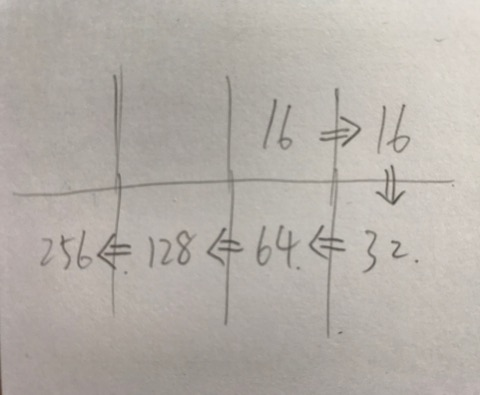 16 ⇒ 16
⇓
256 ⇐ 128 ⇐ 64. ⇐ 32.